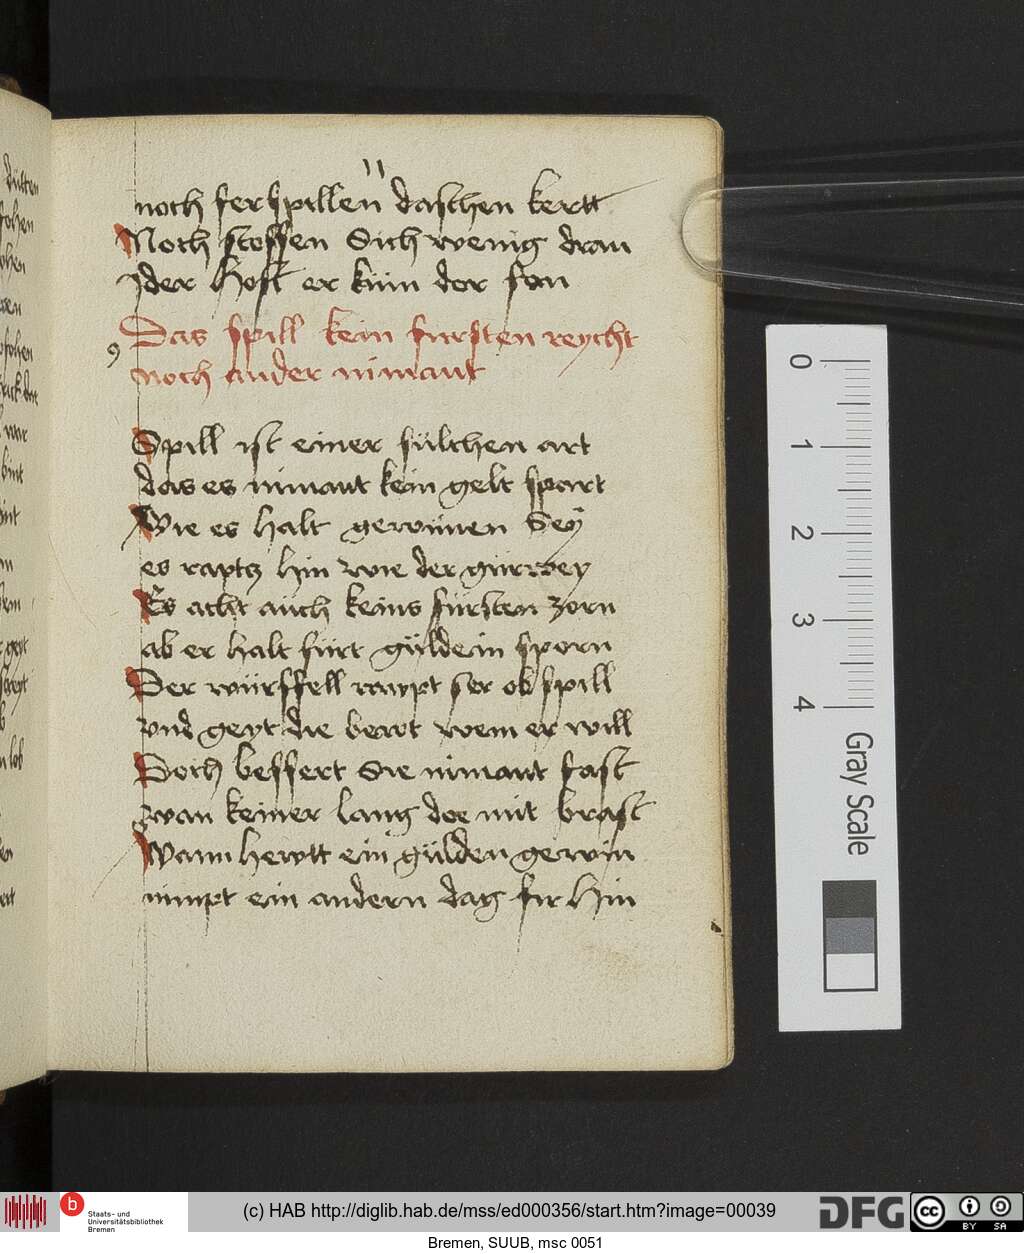 noch ferspillen daschen kertt
Noch steffen Sich wenig dran
Jder hoft er kum der fon
Das spill kein fursten reycht
noch ander nimant
9
Spill ist einer sülchen art
das es nimant kein gelt spart
Wie es halt gewunen Sey
es raptz hin wie der gürrvey
Es acht auch keins fürsten zorn
ab er halt fürt güldein sporn
Der würffell raypt ser ob spill
vnd geyt die bewt wem er will
Doch beffert Sie nimant fast
wan keiner lang doe mit brast
Wann hewtt ein gülden gewin
nimpt ein andern dag fir hin
0
1
2
3
4
Gray Scale
b
Staats- und
Universitätsbibliothek
Bremen
(c) HAB http://diglib.hab.de/mss/ed000356/start.htm?image=00039
DFG
cc
BY SA
Bremen, SUUB, msc 0051